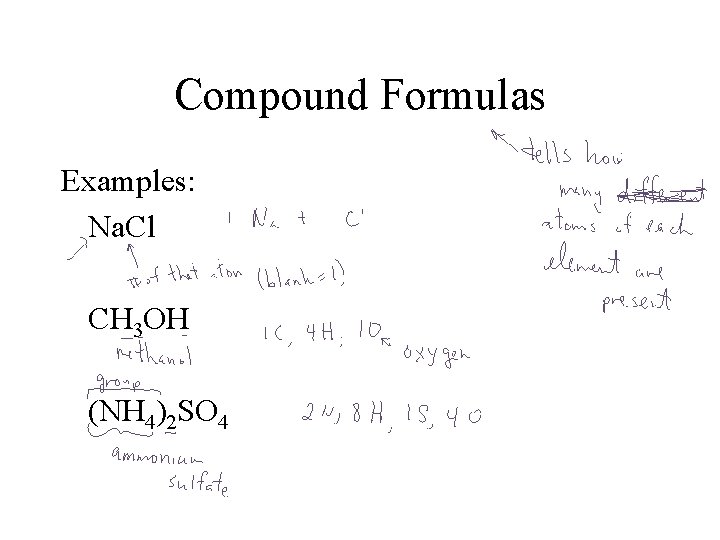 Compound Formulas
tells how
many different
atoms of each
element are
present
Examples:
Na.Cl
1 Na + Cl
# of that atom (blank = 1)
CH3OH
methanol
1C, 4H, 1O
oxygen
group
(NH4)2SO4
2N, 8H, 1S, 4O
ammonium
sulfate